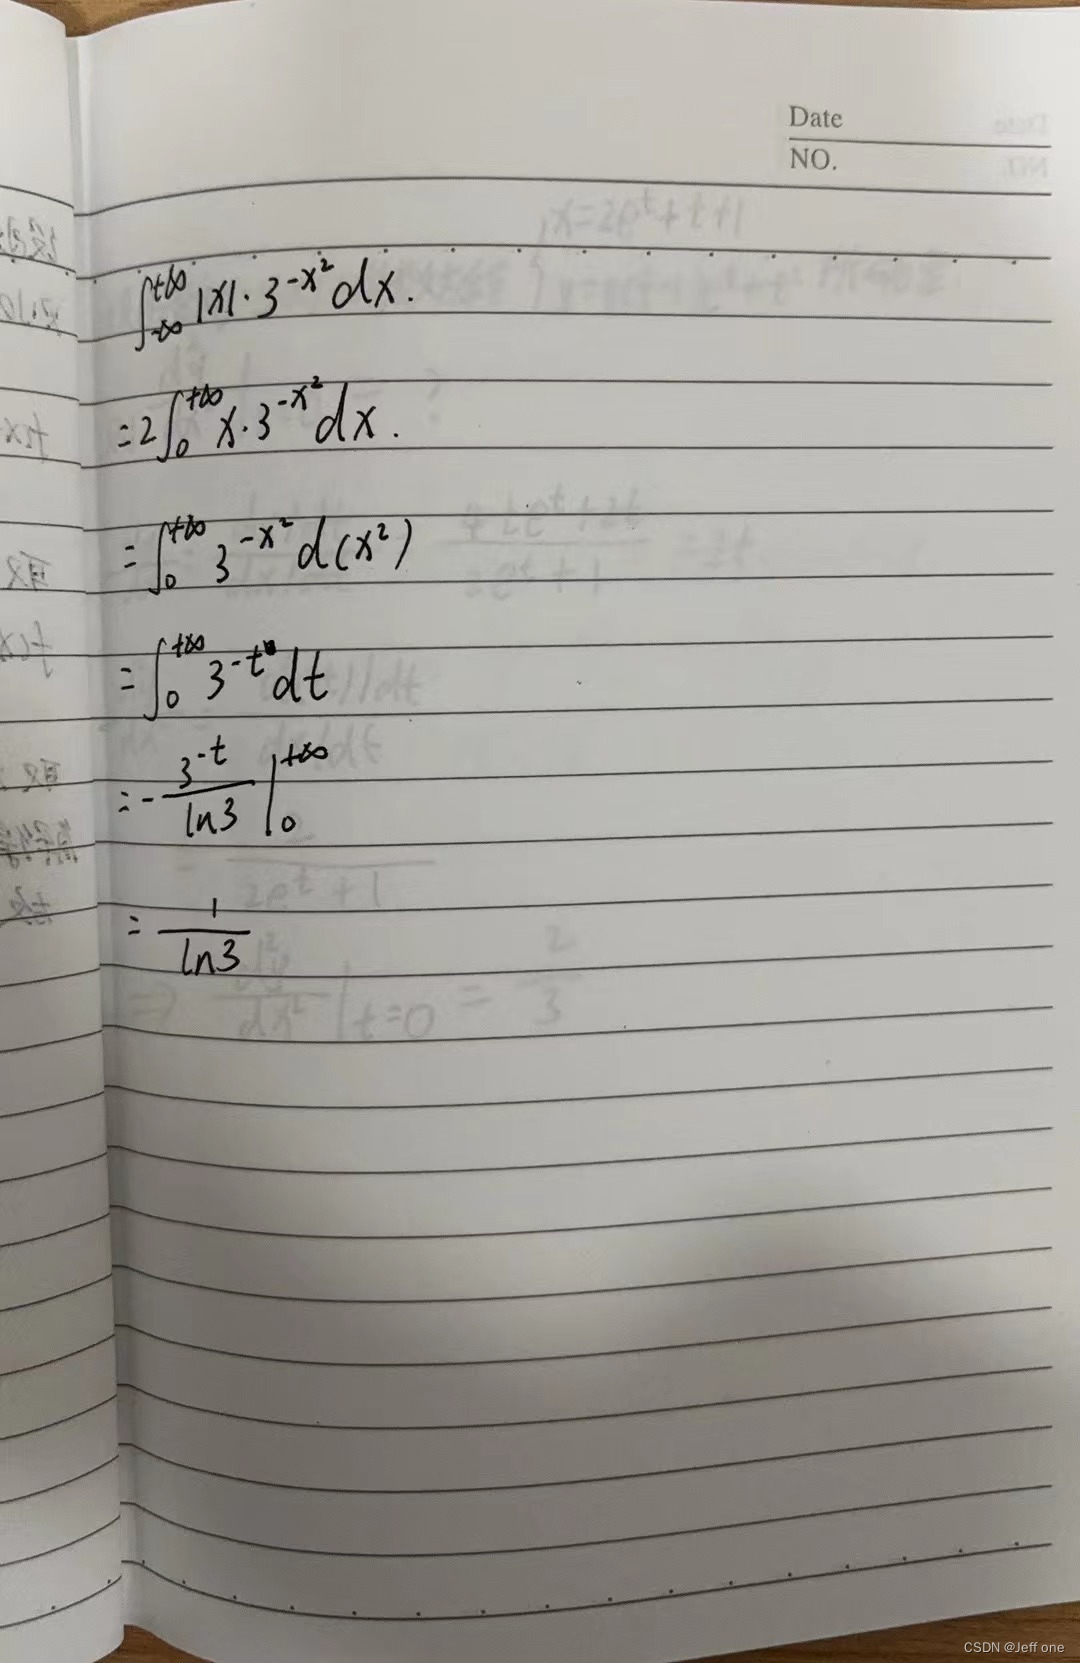 Date
NO.
∫_{-∞}^{+∞} |x|·3^{-x²} dx.
=2∫_0^{+∞} x·3^{-x²} dx.
=∫_0^{+∞} 3^{-x²} d(x²)
=∫_0^{+∞} 3^{-t} dt
=-\frac{3^{-t}}{ln3}|_0^{+∞}
=\frac{1}{ln3}
CSDN @Jeff one